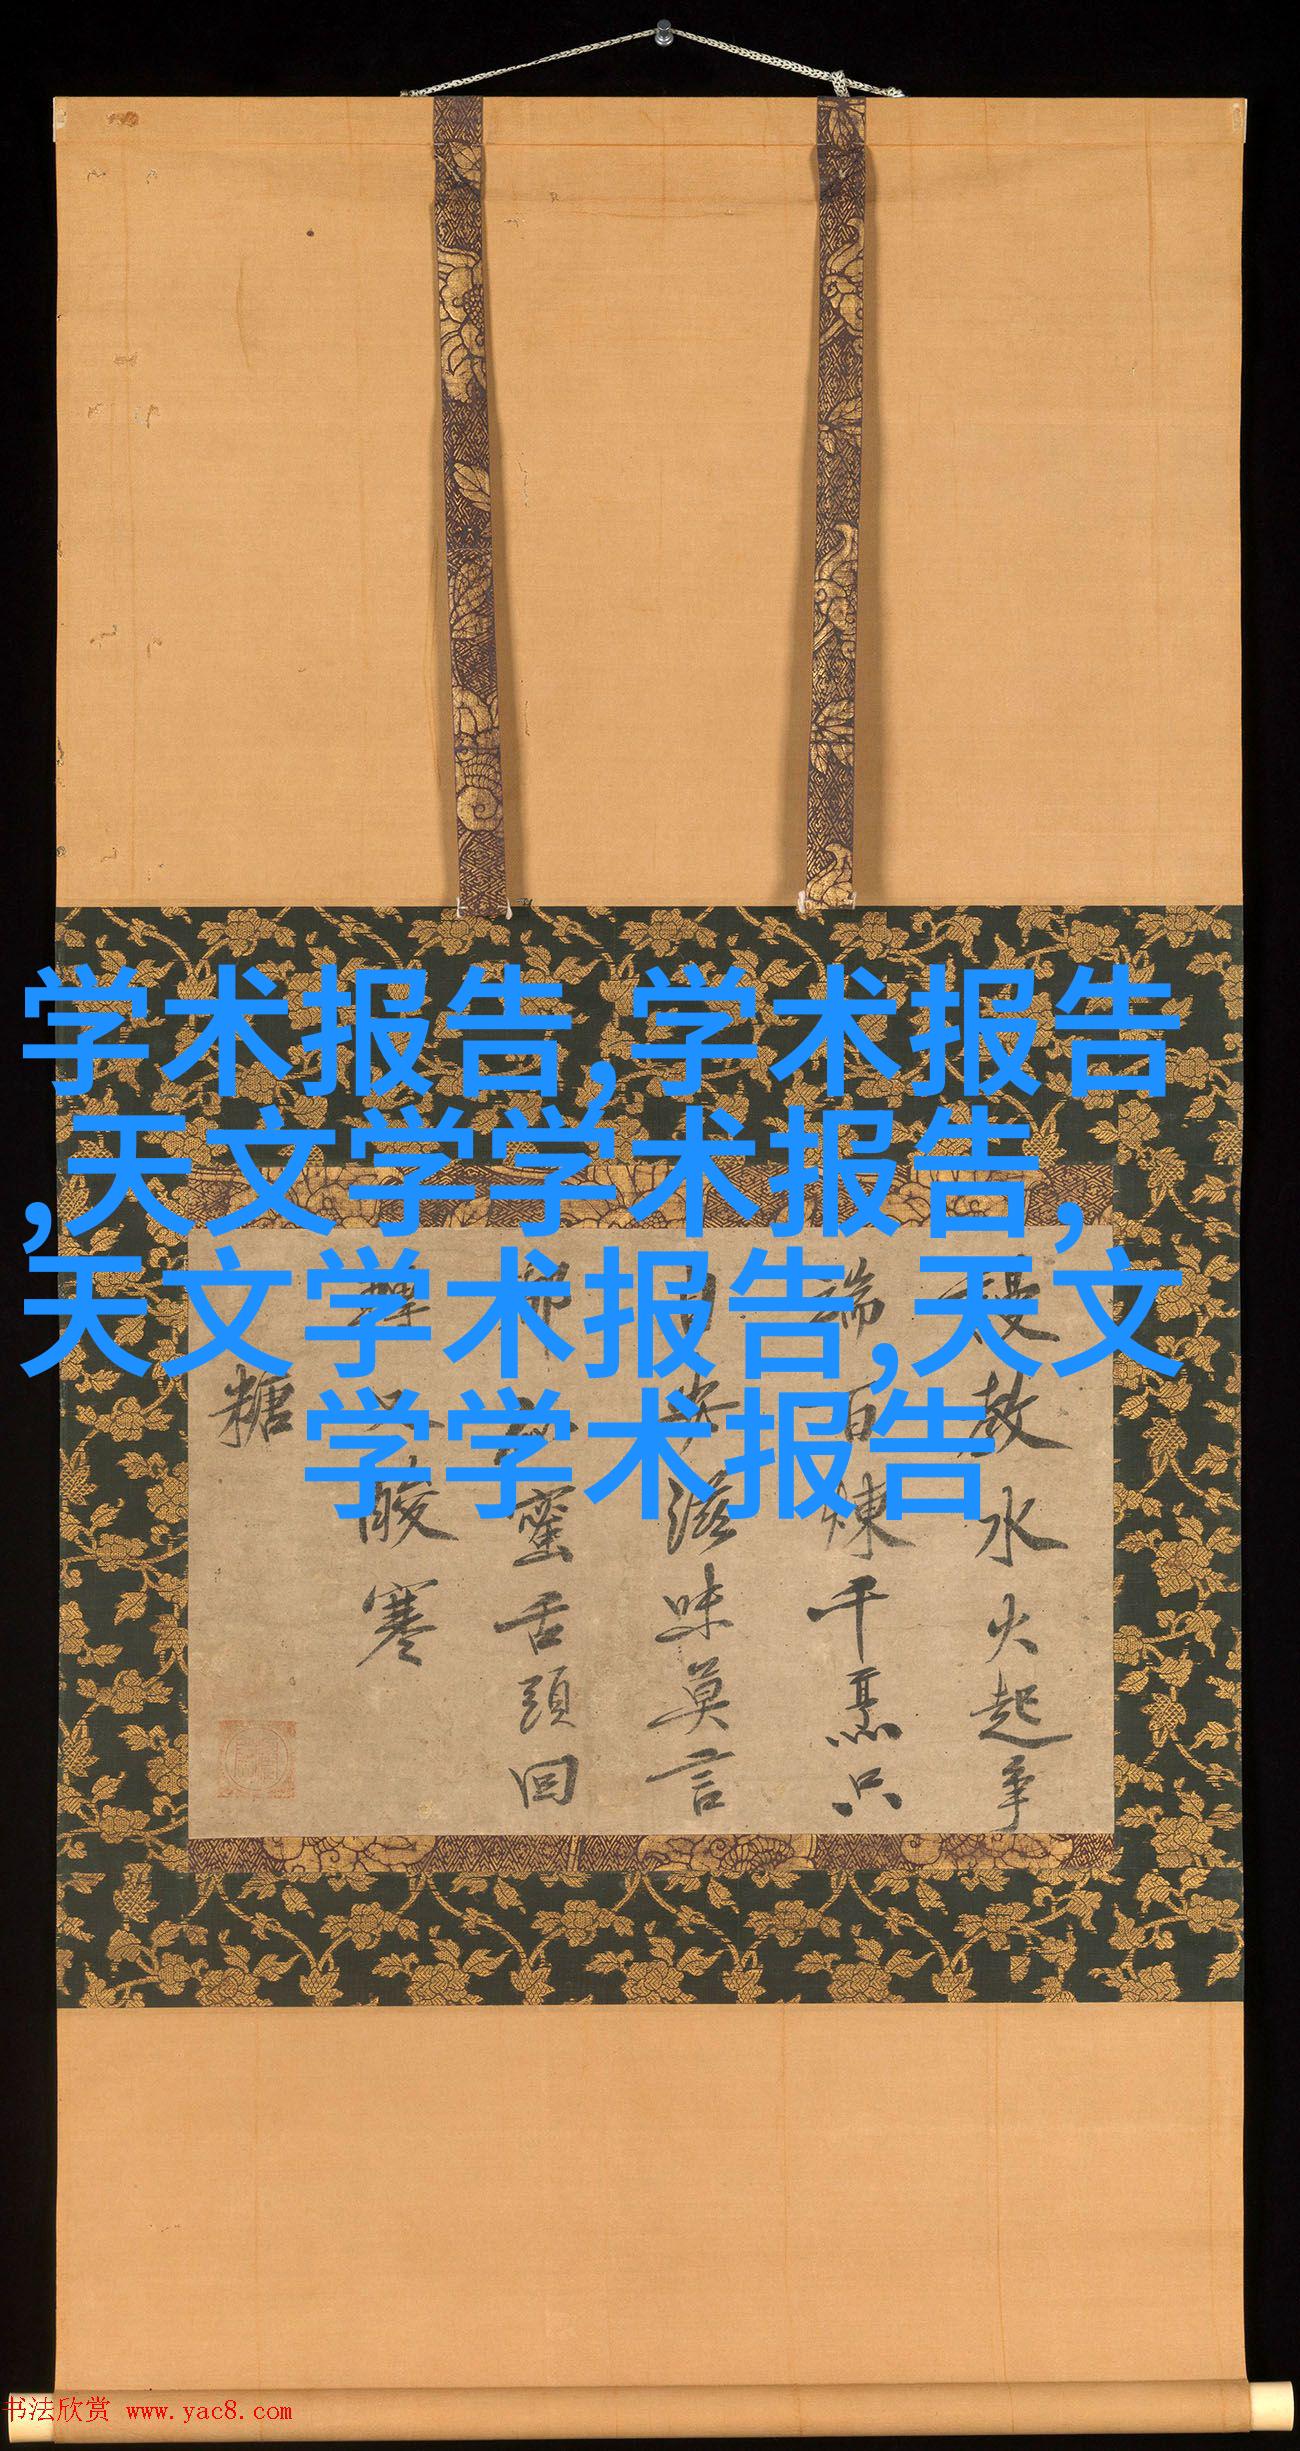 学术报告,学术报告
,天文学学术报告,
天文学术报告,天文
学学术报告
教水火起争
端百煉千烹只
滋味莫言
蜜舌頭回
酸寒
糖
书法欣赏 www.yac8.com